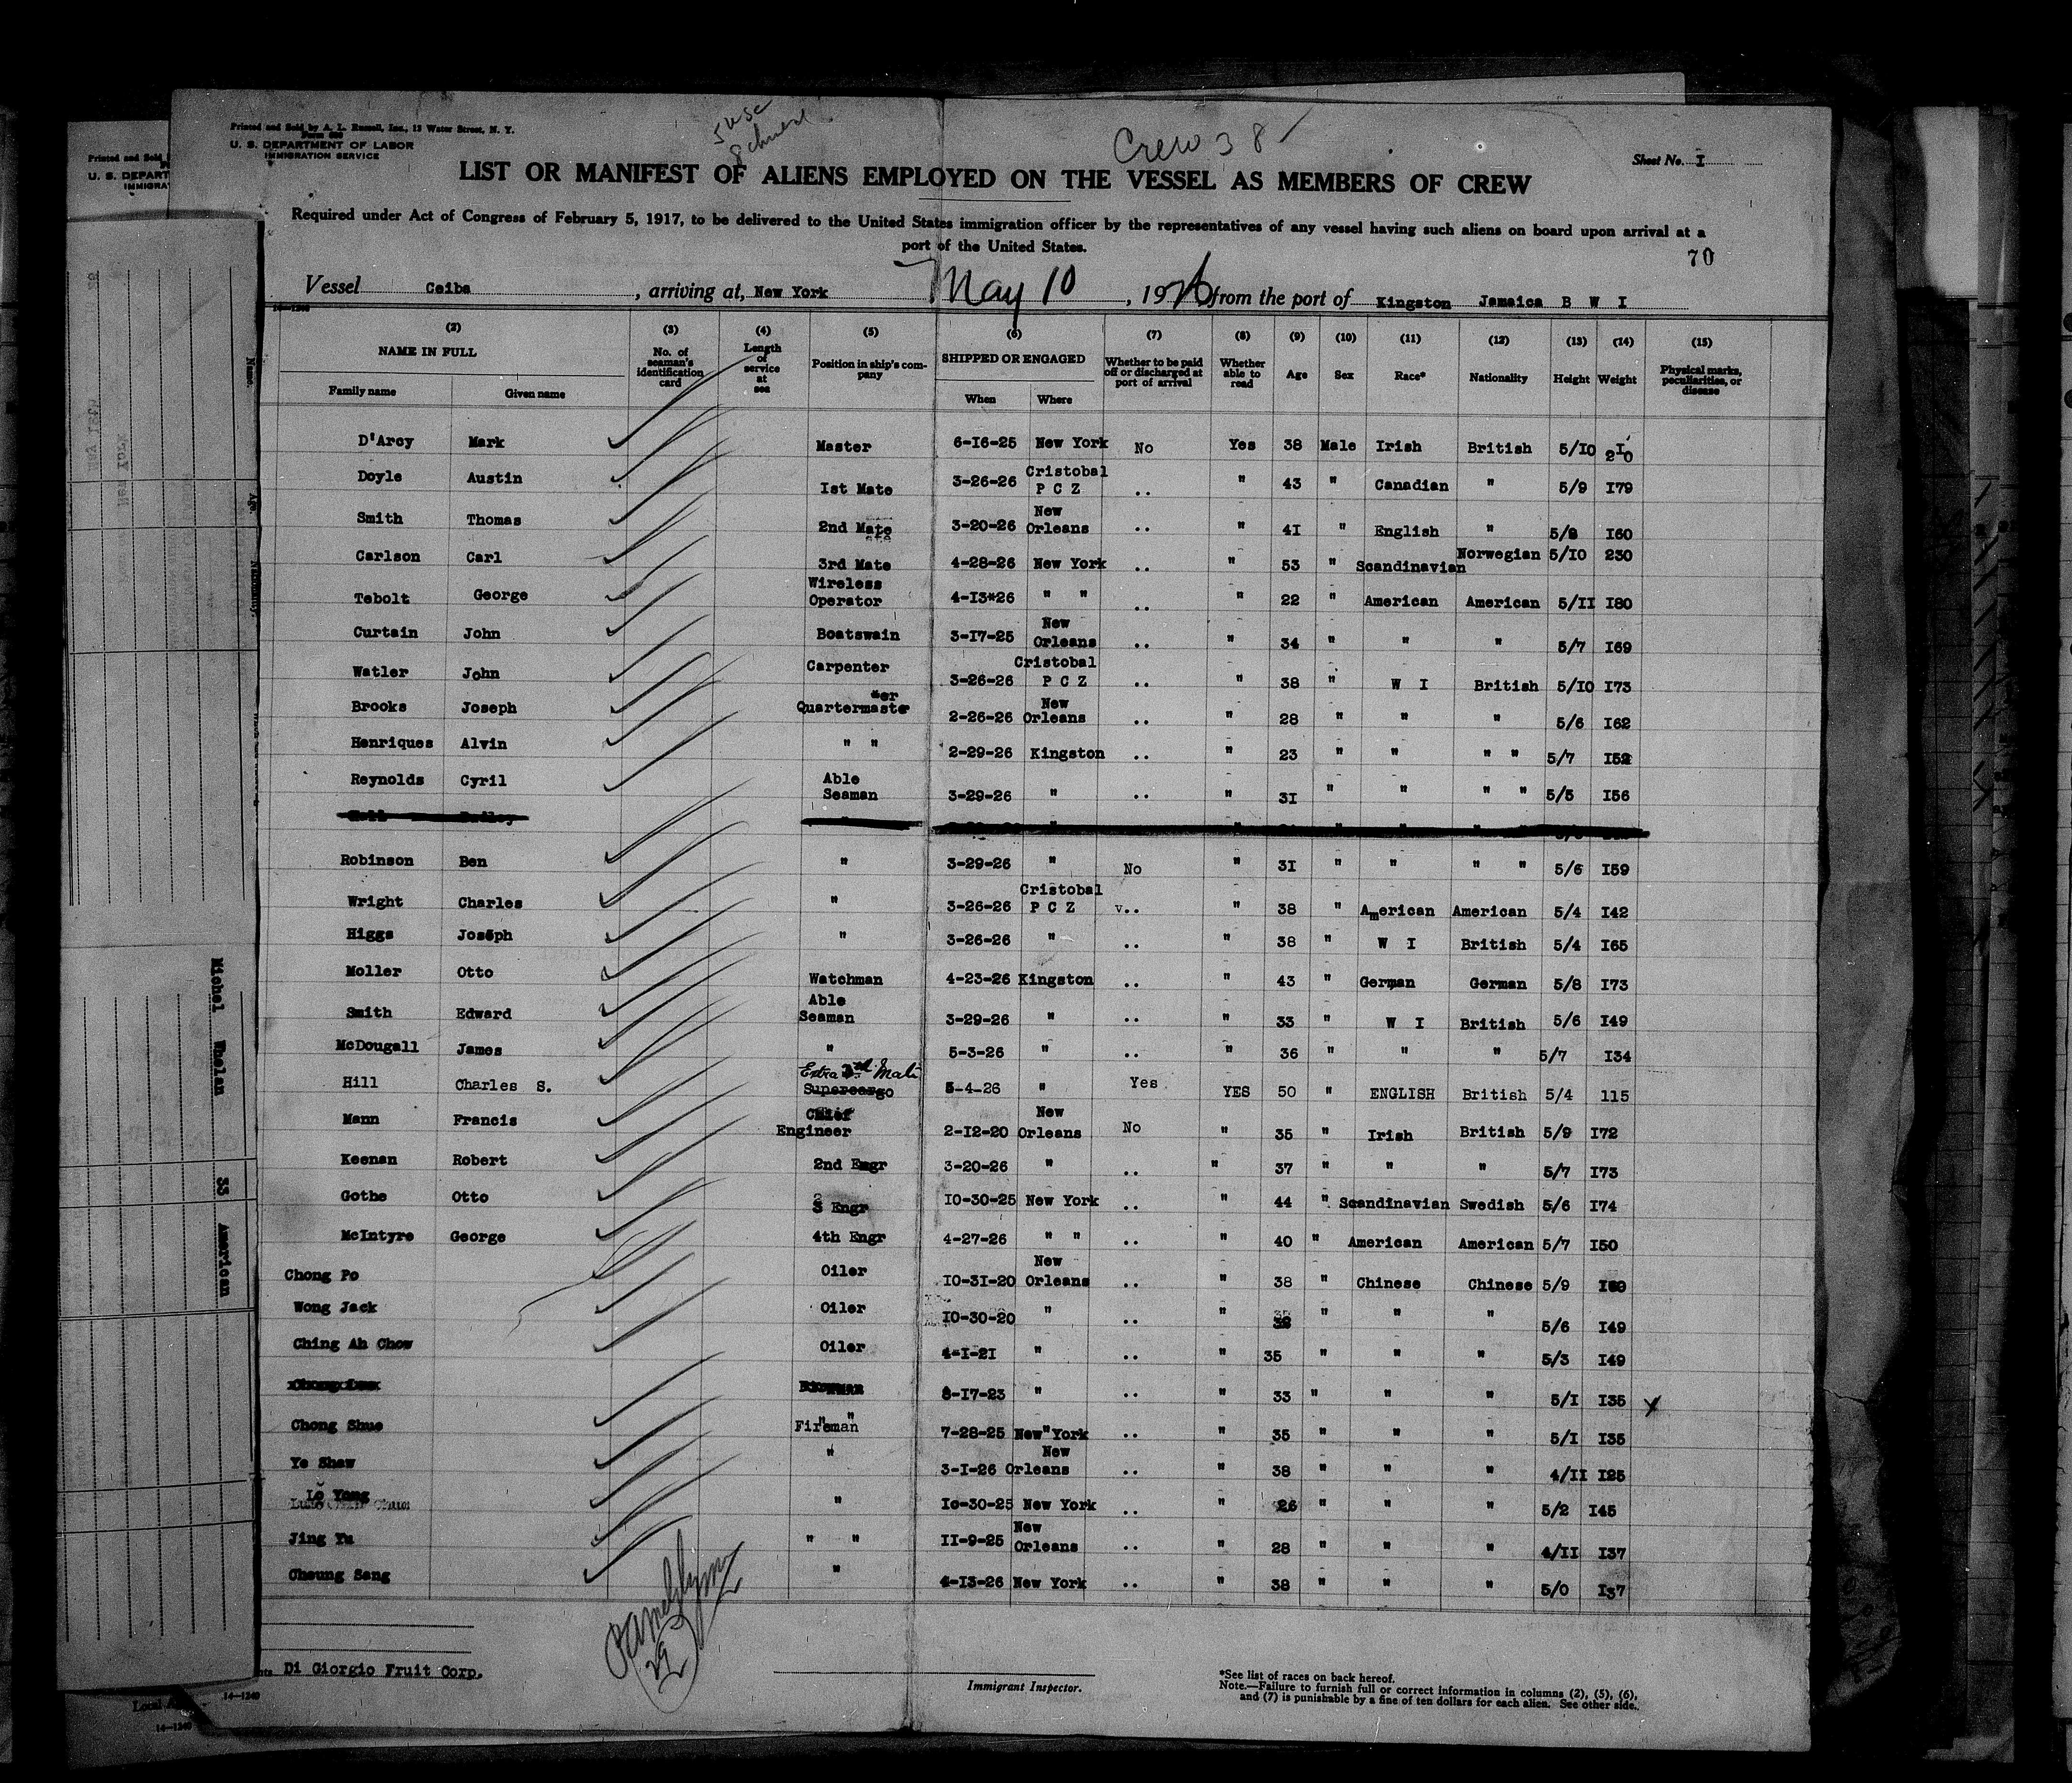 Printed and Sold by A. L. Russell, Inc., 13 Water Street, N. Y.
U. S. DEPARTMENT OF LABOR
IMMIGRATION SERVICE
Crew 38
Sheet No. I
LIST OR MANIFEST OF ALIENS EMPLOYED ON THE VESSEL AS MEMBERS OF CREW
Required under Act of Congress of February 5, 1917, to be delivered to the United States immigration officer by the representatives of any vessel having such aliens on board upon arrival at a
port of the United States.
70
Vessel Ceiba , arriving at, New York May 10 , 1926 from the port of Kingston Jamaica B W I
(2) (3) (4) (5) (6) (7) (8) (9) (10) (11) (12) (13) (14) (15)
NAME IN FULL No. of seaman's identification card Length of service at sea Position in ship's company SHIPPED OR ENGAGED Whether to be paid off or discharged at port of arrival Whether able to read Age Sex Race* Nationality Height Weight Physical marks, peculiarities, or disease
Family name Given name When Where
D'Arcy Mark Master 6-16-25 New York No Yes 38 Male Irish British 5/10 210
Doyle Austin Ist Mate 3-26-26 Cristobal P C Z .. " 43 " Canadian " 5/9 I79
Smith Thomas 2nd Mate 3-20-26 New Orleans .. " 4I " English " 5/8 I60
Carlson Carl 3rd Mate 4-28-26 New York .. " 53 " Scandinavian Norwegian 5/IO 230
Tebolt George Wireless Operator 4-I3*26 " " .. " 22 " American American 5/II I80
Curtain John Boatswain 3-I7-25 New Orleans .. " 34 " " " 5/7 I69
Watler John Carpenter 3-26-26 Cristobal P C Z .. " 38 " W I British 5/IO I73
Brooks Joseph Quartermaster 2-26-26 New Orleans .. " 28 " " " 5/6 I62
Henriques Alvin " " 2-29-26 Kingston .. " 23 " " " " 5/7 I52
Reynolds Cyril Able Seaman 3-29-26 " .. " 3I " " " " 5/5 I56
Robinson Ben " 3-29-26 " No " 3I " " " " 5/6 I59
Wright Charles " 3-26-26 Cristobal P C Z v.. " 38 " American American 5/4 I42
Higgs Joseph " 3-26-26 " .. " 38 " W I British 5/4 I65
Moller Otto Watchman 4-23-26 Kingston .. " 43 " German German 5/8 I73
Smith Edward Able Seaman 3-29-26 " .. " 33 " W I British 5/6 I49
McDougall James " 5-3-26 " .. " 36 " " " 5/7 I34
Hill Charles S. Extra 3rd Mate Supercargo 5-4-26 " Yes YES 50 " ENGLISH British 5/4 115
Mann Francis Chief Engineer 2-I2-20 New Orleans No " 35 " Irish British 5/9 I72
Keenan Robert 2nd Engr 3-20-26 " .. " 37 " " " 5/7 I73
Gothe Otto 3 Engr IO-30-25 New York .. " 44 " Scandinavian Swedish 5/6 I74
McIntyre George 4th Engr 4-27-26 " " .. " 40 " American American 5/7 I50
Chong Po Oiler IO-3I-20 New Orleans .. " 38 " Chinese Chinese 5/9
Wong Jack Oiler IO-30-20 " .. " " " " 5/6 I49
Ching Ah Chow Oiler 4-I-2I " .. " 35 " " " 5/3 I49
8-I7-23 " .. " 33 " " " 5/I I35 X
Chong Shue Fireman 7-28-25 New York .. " 35 " " " 5/I I35
Ye Shaw " 3-I-26 New Orleans .. " 38 " " " 4/II I25
Lo Yong " Io-30-25 New York .. " 26 " " " 5/2 I45
Jing Yu " " II-9-25 New Orleans .. " 28 " " " 4/II I37
Cheung Sang " 4-I3-26 New York .. " 38 " " " 5/0 I37
29
Di Giorgio Fruit Corp.
Immigrant Inspector.
*See list of races on back hereof.
Note.—Failure to furnish full or correct information in columns (2), (5), (6),
and (7) is punishable by a fine of ten dollars for each alien. See other side.
14—1240
14—1240
Michel Whelan 33 American